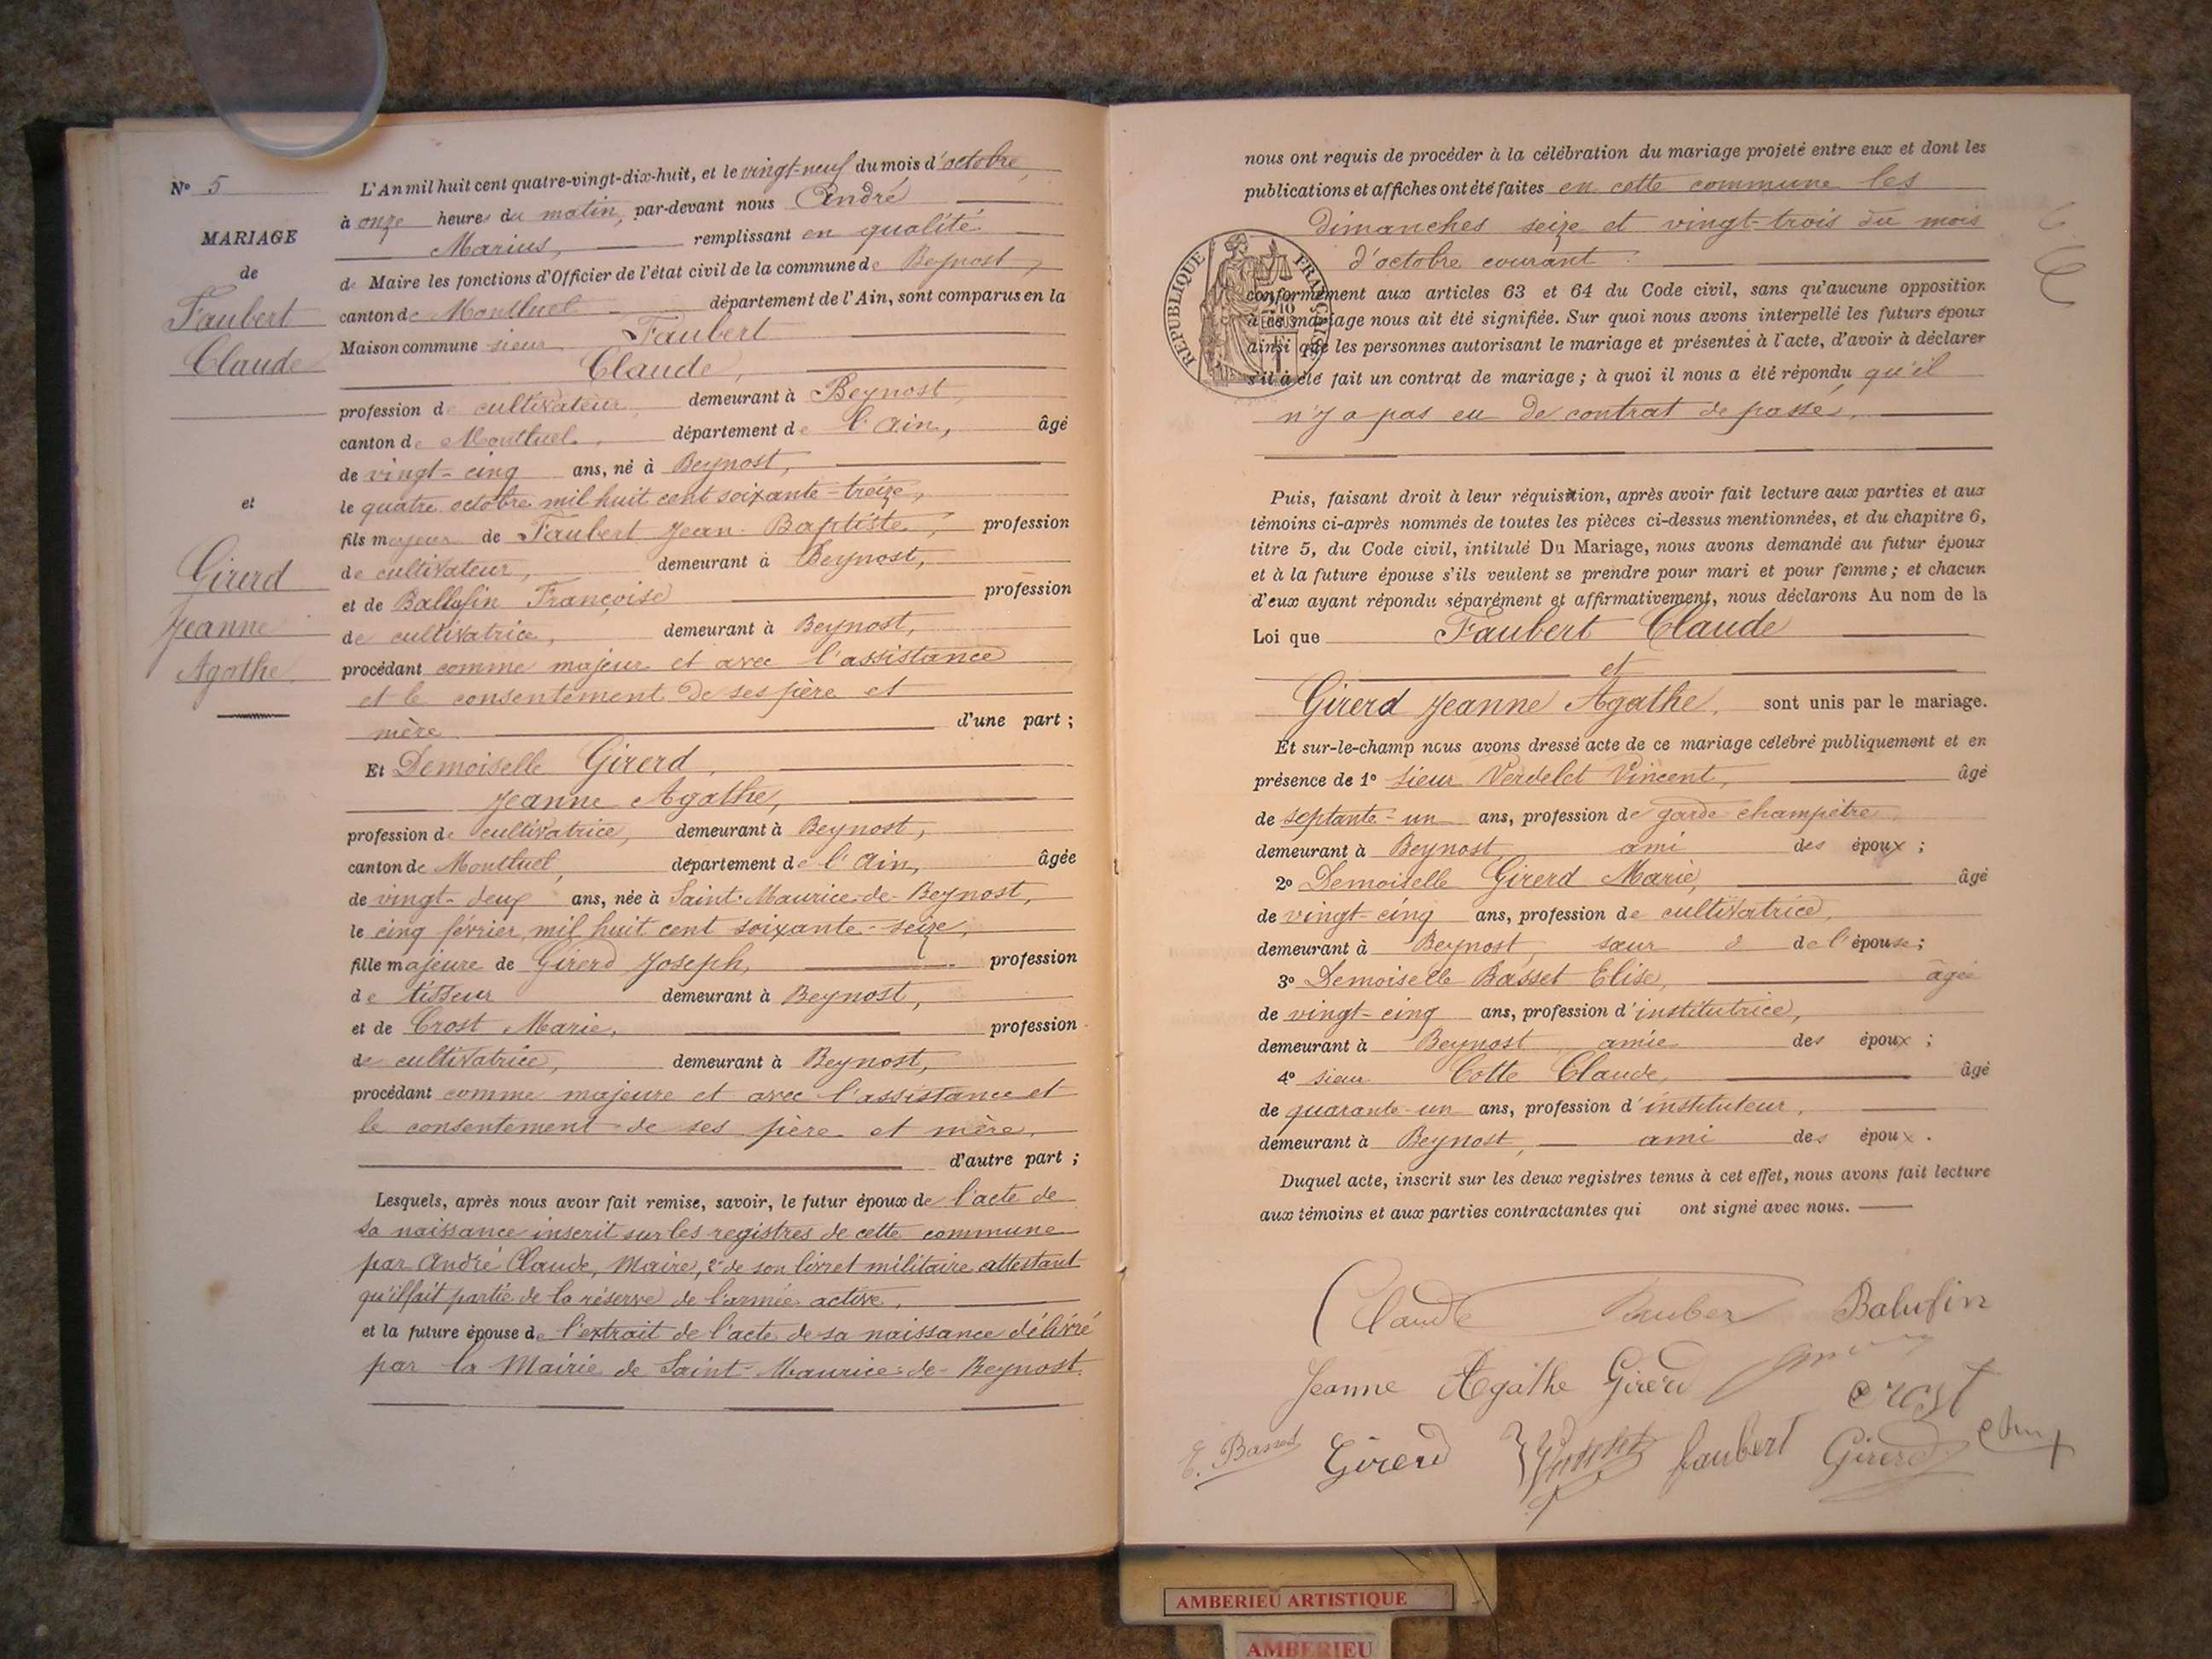 N° 5
MARIAGE
de
Faubert
Claude
et
Girerd
Jeanne
Agathe.
L'An mil huit cent quatre-vingt-dix-huit, et le vingt-neuf du mois d'octobre,
à onze heures du matin, par-devant nous André
Marius, remplissant en qualité
de Maire les fonctions d'Officier de l'état civil de la commune de Beynost,
canton de Montluel département de l'Ain, sont comparus en la
Maison commune sieur Faubert
Claude,
profession de cultivateur demeurant à Beynost,
canton de Montluel, département de l'Ain, âgé
de vingt-cinq ans, né à Beynost,
le quatre octobre mil huit cent soixante-treize,
fils majeur de Faubert Jean Baptiste, profession
de cultivateur, demeurant à Beynost,
et de Ballufin Françoise profession
de cultivatrice, demeurant à Beynost,
procédant comme majeur et avec l'assistance
et le consentement de ses père et
mère. d'une part ;
Et Demoiselle Girerd,
Jeanne Agathe,
profession de cultivatrice, demeurant à Beynost,
canton de Montluel, département de l'Ain, âgée
de vingt-deux ans, née à Saint-Maurice-de-Beynost,
le cinq février mil huit cent soixante-seize,
fille majeure de Girerd Joseph, profession
de tisseur demeurant à Beynost,
et de Crost Marie, profession
de cultivatrice, demeurant à Beynost,
procédant comme majeure et avec l'assistance et
le consentement de ses père et mère,
d'autre part ;
Lesquels, après nous avoir fait remise, savoir, le futur époux de l'acte de
sa naissance inscrit sur les registres de cette commune
par André Claude, Maire, 2° de son livret militaire attestant
qu'il fait partie de la réserve de l'armée active,
et la future épouse de l'extrait de l'acte de sa naissance délivré
par la Mairie de Saint-Maurice-de-Beynost.
nous ont requis de procéder à la célébration du mariage projeté entre eux et dont les
publications et affiches ont été faites en cette commune les
dimanches seize et vingt-trois du mois
d'octobre courant.
RÉPUBLIQUE FRANÇAISE
conformément aux articles 63 et 64 du Code civil, sans qu'aucune opposition
à ce mariage nous ait été signifiée. Sur quoi nous avons interpellé les futurs époux
ainsi que les personnes autorisant le mariage et présentes à l'acte, d'avoir à déclarer
s'il a été fait un contrat de mariage ; à quoi il nous a été répondu qu'il
n'y a pas eu de contrat de passé.
Puis, faisant droit à leur réquisition, après avoir fait lecture aux parties et aux
témoins ci-après nommés de toutes les pièces ci-dessus mentionnées, et du chapitre 6,
titre 5, du Code civil, intitulé Du Mariage, nous avons demandé au futur époux
et à la future épouse s'ils veulent se prendre pour mari et pour femme ; et chacun
d'eux ayant répondu séparément et affirmativement, nous déclarons Au nom de la
Loi que Faubert Claude
et
Girerd Jeanne Agathe, sont unis par le mariage.
Et sur-le-champ nous avons dressé acte de ce mariage célébré publiquement et en
présence de 1° sieur Verdelet Vincent, âgé
de septante-un ans, profession de garde champêtre
demeurant à Beynost, ami des époux ;
2° Demoiselle Girerd Marie, âgé
de vingt-cinq ans, profession de cultivatrice,
demeurant à Beynost, sœur de l'épouse ;
3° Demoiselle Basset Elise, âgée
de vingt-cinq ans, profession d'institutrice,
demeurant à Beynost amie des époux ;
4° sieur Cotte Claude, âgé
de quarante-un ans, profession d'instituteur,
demeurant à Beynost, ami des époux.
Duquel acte, inscrit sur les deux registres tenus à cet effet, nous avons fait lecture
aux témoins et aux parties contractantes qui ont signé avec nous.
Claude Fauber Balufin
Jeanne Agathe Girerd
crost
E. Basset Girerd faubert Girerd
AMBERIEU ARTISTIQUE
AMBERIEU